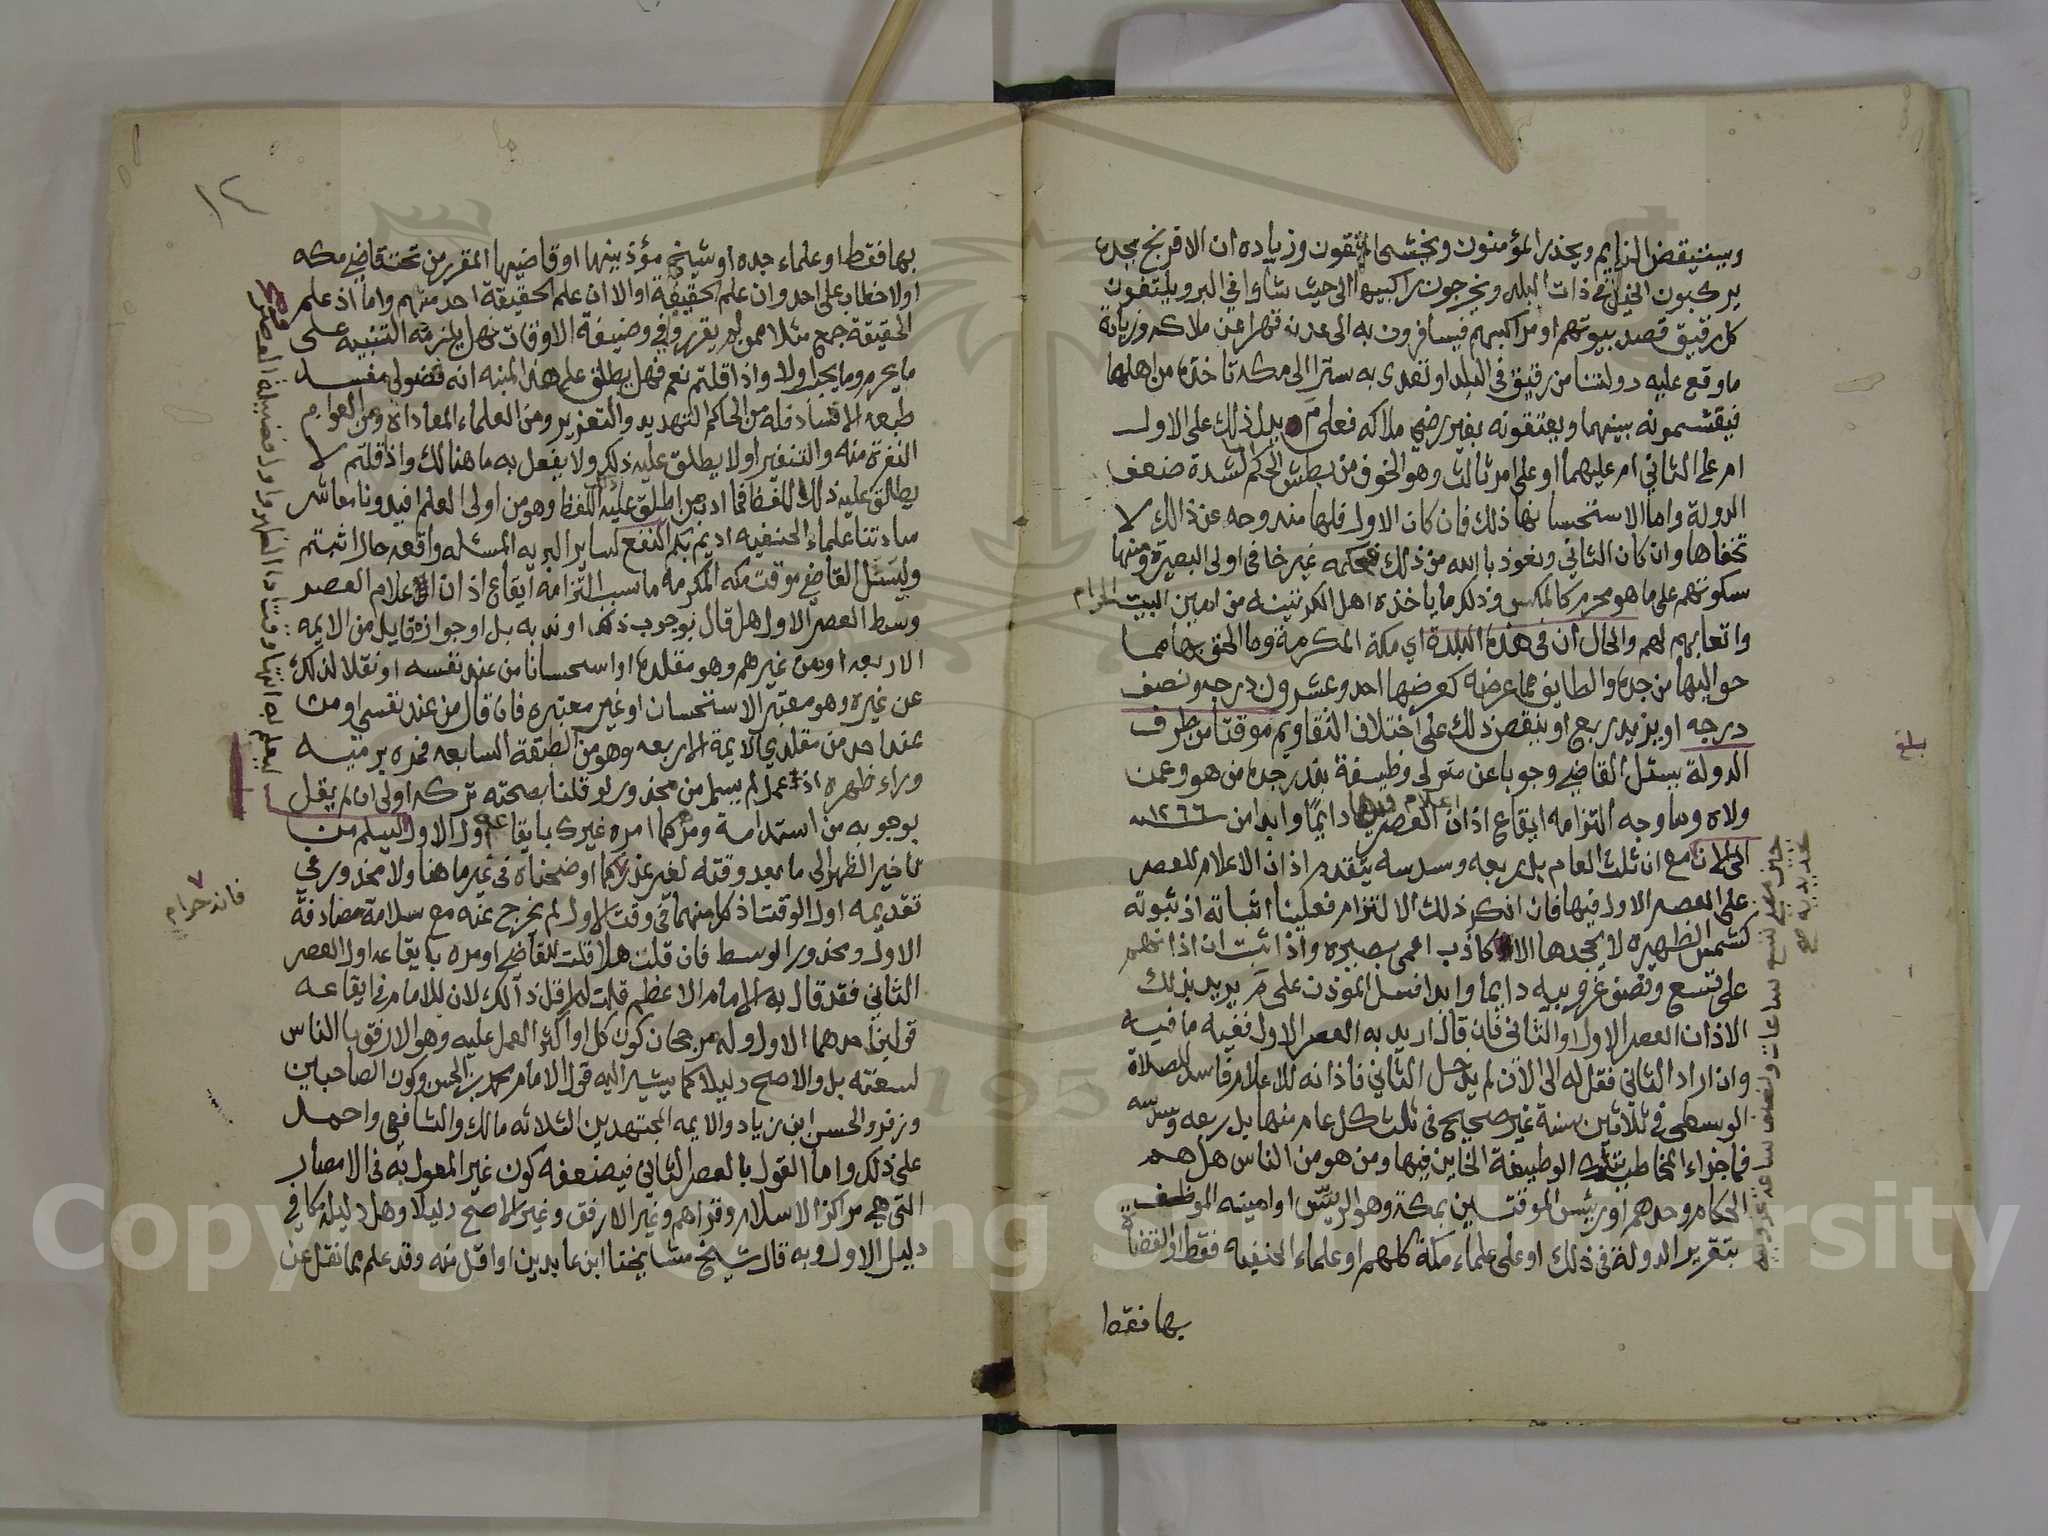 وبينتيقض النايم ويحذر المؤمنون ويخشى المتقون وزياده ان الافرنج بجده
يركبون الخيل في ذات البلد ويخرجون راكبيها الى حيث شاوا في البر ويلتقون
كل رقيق قصد بيوتهم او مراكبهم فيسافرون به الى عدنه قهرا عن ملاكه وزيادة
ما وقع عليه دولتنا من رقيق في البلد او تعدى به سترا الى مكه تاخذه من اهلها
فيقتسمونه بينهما ويعتقونه بغير رضى ملاكه فعلى م يدل ذلك على الاول
ام على الثاني ام عليهما او على امر ثالث وهو الخوف من بطش الحكم لشدة ضعف
الدولة واما الاستحسانها ذلك فان كان الاول فلها مندوحه عن ذالك لا
تخفاها وان كان الثاني ونعوذ بالله من ذلك فحكمه غير خافي اولى البصيرة ومنها
سكوتهم على ما هو محرم كالمكس وذلك ما ياخذه اهل الكرنتينه من امين البيت الحرام
واتعابهم لهم والحال ان في هذه البلدة اي مكة المكرمة وما الحق بها مما
حواليها من جده والطايف مما عرضه كعرضها احد وعشرون درجه ونصف
درجه او يزيد ربع او ينقص ذلك على اختلاف التقاويم موقتا من طرف
الدولة يسئل القاضي وجوبا عن متولى وظيفة بندر جده من هو وعمن
ولاه وما وجه التزامه ايقاع اذان اعلام العصر فيها دايمًا وابدا من ١٢٦٦
الى الان مع ان ثلث العام بل ربعه وسدسه يتقدم اذان الاعلام للعصر
على العصر الاول فيها فان انكر ذلك الالتزام فعلينا اثباته اذ ثبوته
كشمس الظهيره لا يجحدها الا كاذب اعمى بصيره واذا ثبت ان اذانهم
على تسع ونصف غروبيه دايما وابدا فسل المؤذن على م يريد بذلك
الاذان العصر الاول او الثاني فان قال اريد به العصر الاول ففيه ما فيه
وان اراد الثاني فقل له الى الان لم يدخل الثاني فاذانه للاعلام فاسد للصلاة
الوسطى في ثلاثين سنة غير صحيح في ثلث كل عام منها بل ربعه وسدسه
فما جزاء المخاطب بتلك الوظيفة الخاين فيها ومن هو من الناس هل هم
الحكام وحدهم او رئيس الموقتين بمكة وهو الريّس او امينه الموظف
بتقرير الدولة في ذلك او على علماء مكة كلهم او علماء الحنفيه فقط او القضاة
بها فقط
حين مجلي تسع ساعات ونصف ساعة غروبيه
بلغ
١٢
بها فقط او علماء جده او شيخ مؤذنينها او قاضيها المقرر من تحت قاضي مكه
اولا خطاب على احد وان علم الحقيقة او الا ان علم الحقيقة احد منهم واما اذ علم
الحقيقة جمع مثلا ممن لم يقرروا في وضيفة الاوقات فهل يلزمه التنبيه على
ما يحرم وما يجب اولا واذا قلتم نعم فهل يطلق على هذا المنبه انه فضولي مفسد
طبعه الافساد فله من الحاكم التهديد والتعزير ومن العلماء المعاداة ومن العوام
النفرة منه والتنفير او لا يطلق عليه ذلك ولا يفعل به ما هنالك واذ قلتم لا
يطلق عليه ذلك اللفظ فما ادب من اطلق عليه اللفظ وهو من اولى العلم افيدونا معاشر
ساداتنا علماء الحنفيه اديم بكم النفع لساير البريه المسئله واقعه حال اثبتم
وليسئل القاضي موقت مكه المكرمه ما سبب التزامه ايقاع اذان اعلام العصر
وسط العصر الاول هل قال بوجوب ذلك او ندبه بل او جوازه قايل من الايمه
الاربعه او من غيرهم وهو مقلده او استحسانا من عند نفسه او نقلا لذلك
عن غيره وهو معتبر الاستحسان او غير معتبره فان قال من عند نفسي او من
عند احد من مقلدي الايمة الاربعه وهو من الطبقة السابعه فخذه برمته
وراء ظهره اذ عمل لم يسلم من محذور لو قلنا بصحته تركه اولى ان لم يقل
بوجوبه من استدامة ومر كما امره غيرك بايقاعه اول الاول ليسلم من
تاخير الظهر الى ما بعد وقته لغير عذر كما اوضحناه في غير ما هنا ولا محذور في
تقديمه اول الوقت اذ كل منهما في وقت الاول لم يخرج عنه مع سلامة مصادفة
الاول ومحذور الوسط فان قلت هلا قلت للقاضي او مره بايقاعه اول العصر
الثاني فقد قال به الامام الاعظم قلت لم اقل ذالك لان للامام في ايقاعه
قولين احدهما الاول وله مرجحان كون كل او اكثر العمل عليه وهو الارفق بالناس
لسعته بل والاصح دليلا كما يشير اليه قول الامام محمد بن الحسن وكون الصاحبين
وزفر والحسن ابن زياد والايمه المجتهدين الثلاثه مالك والشافعي واحمد
على ذلك واما القول بالعصر الثاني فيضعفه كون غير المعول به في الامصار
التي هي مراكز الاسلام وقراهم وغير الارفق وغير الاصح دليلا وهل دليله كافي
دليل الاول وبه قال شيخ مشايخنا ابن عابدين او اقل منه وقد علم مما نقل عن
فانه حرام
Copyright © King Saud University
1957